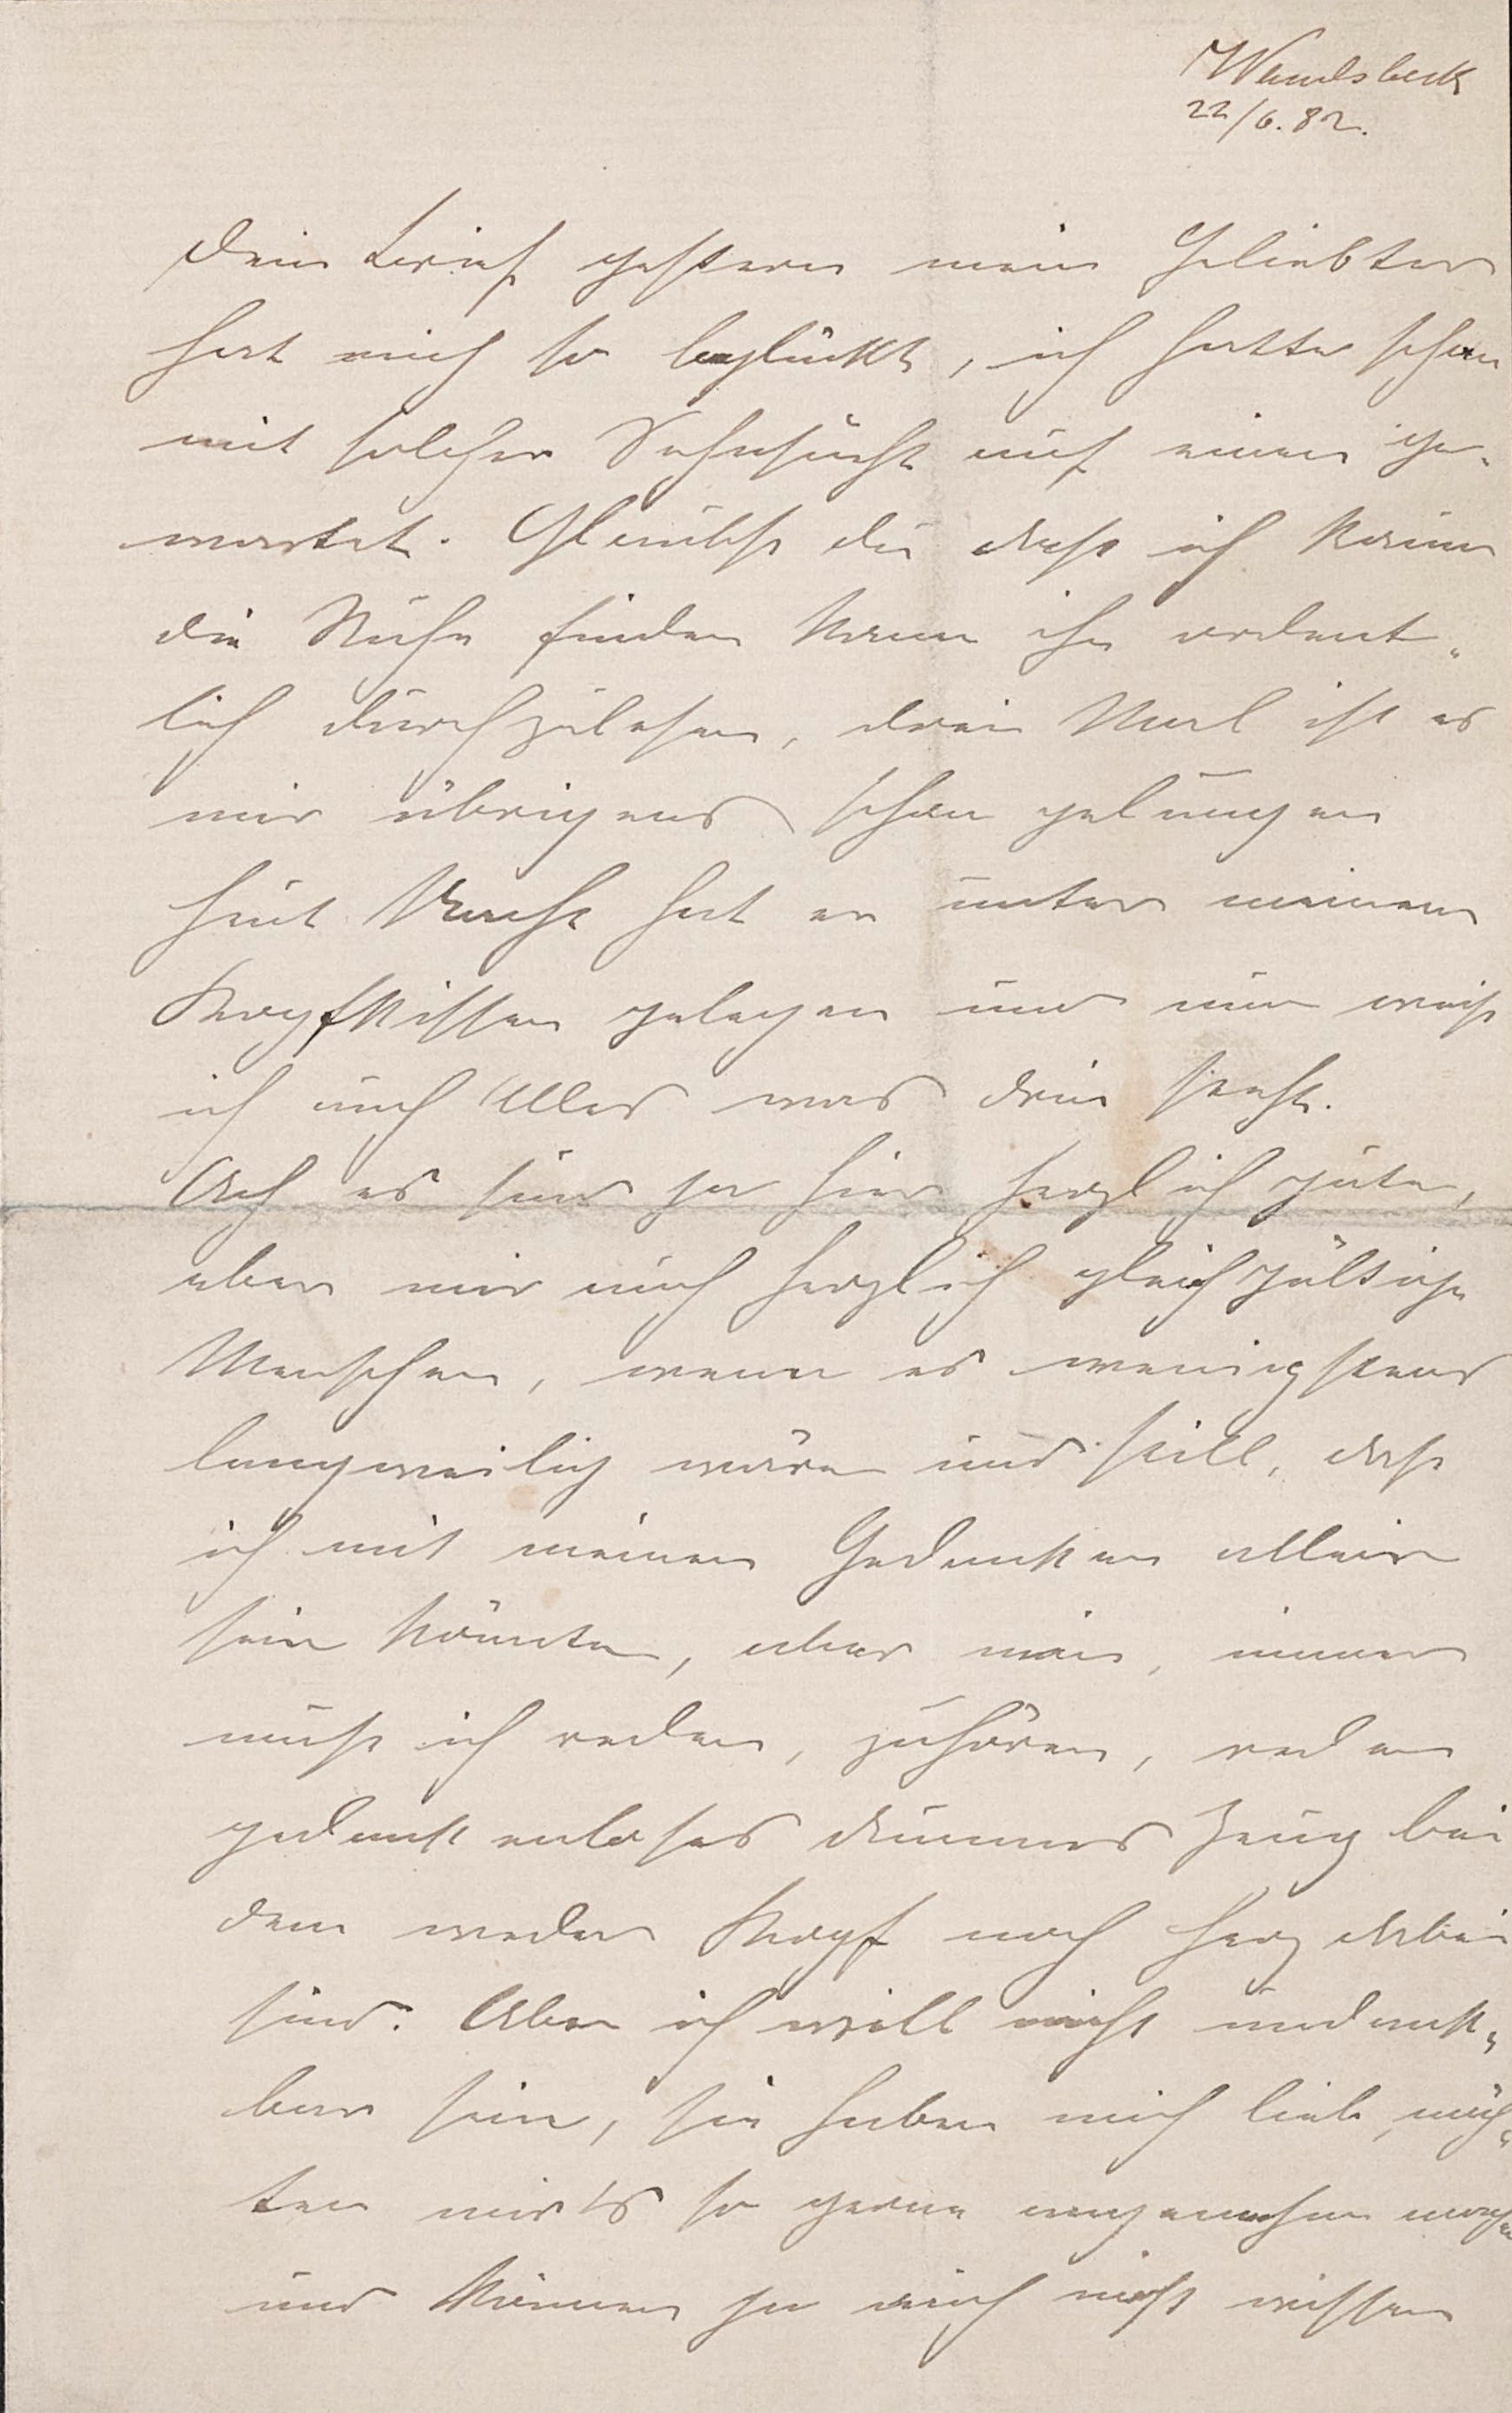 Wandsbeck
22/6.82.
Dein Brief gestern mein Geliebter
hat mich so beglückt, ich hatte schon
mit solcher Sehnsucht auf einen ge-
wartet. Glaubst du daß ich kaum
die Ruhe finden kann ihn ordent-
lich durchzulesen, drei Mal ist es
mir übrigens schon gelungen
heut Nacht hat er unter meinem
Kopfkissen gelegen und nun weiß
ich auch Alles was drin steht.
Ach es sind ja hier herzlich gute,
aber mir auch herzlich gleichgültige
Menschen, wenn es wenigstens
langweilig wäre und still, daß
ich mit meinen Gedanken allein
sein könnte, aber nein, immer
muß ich reden, zuhören, reden
gedankenloses dummes Zeug bei
dem weder Kopf noch Herz dabei
sind. Aber ich will nicht undank-
bar sein, sie haben mich lieb, möch-
ten mirs so gerne angenehm machen
und können ja auch nicht wissen